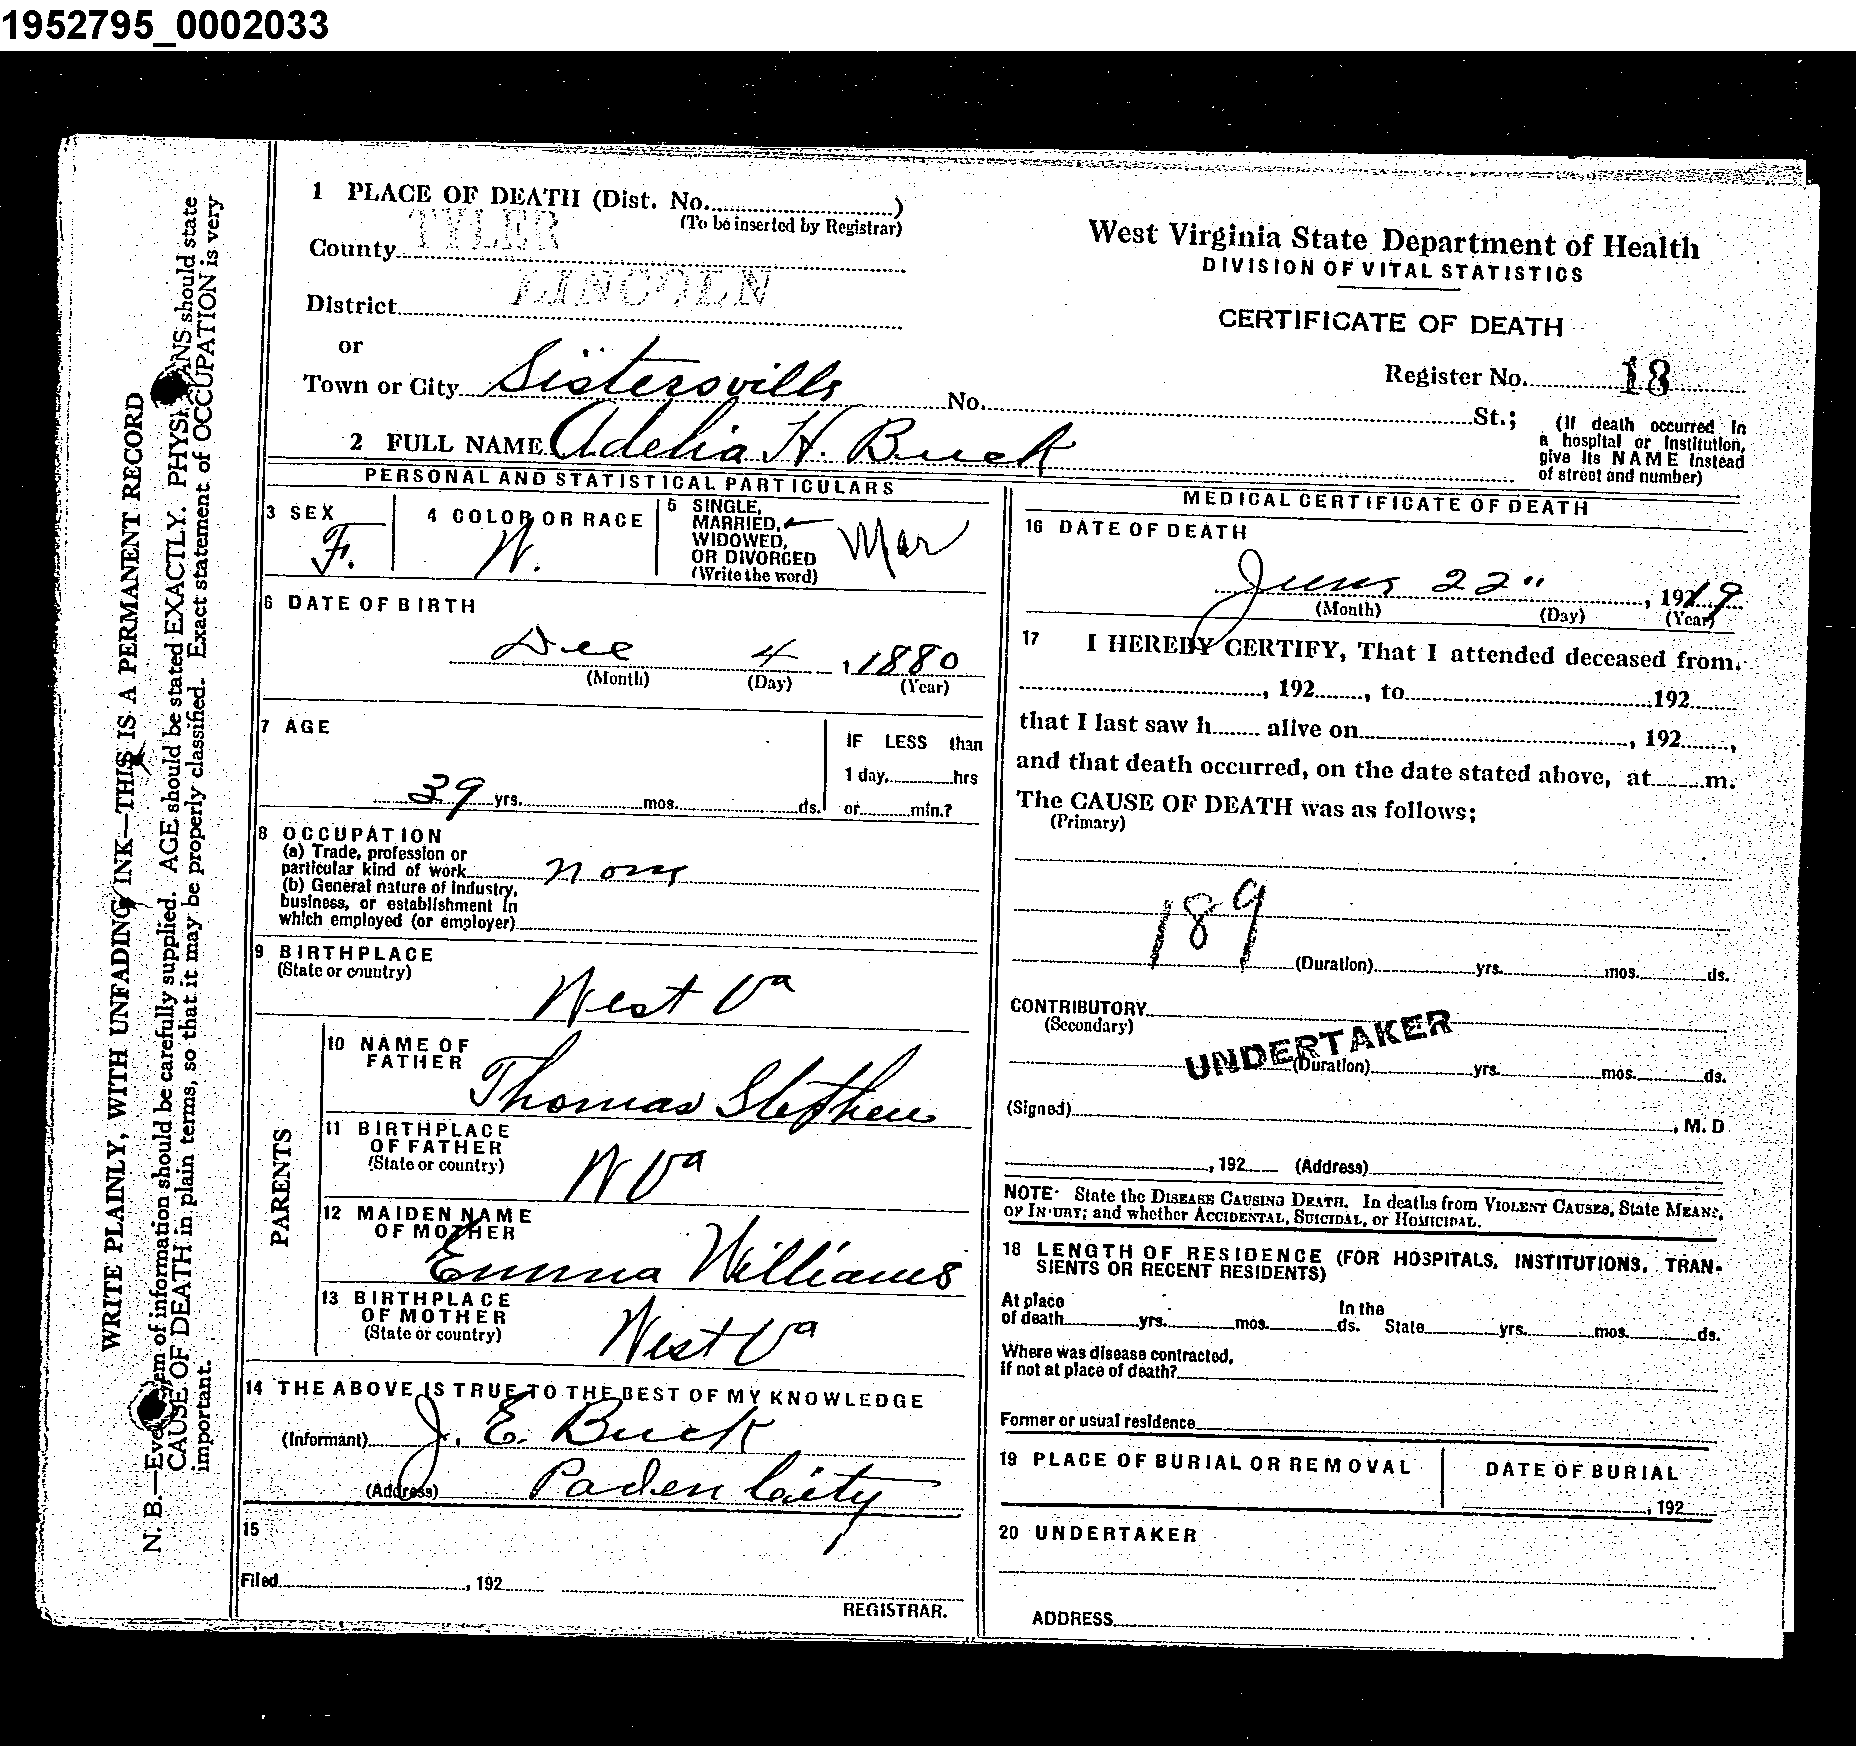 1952795_0002033
1 PLACE OF DEATH (Dist. No.........)
(To be inserted by Registrar)
County TYLER
District LINCOLN
or
Town or City Sistersville No. St.;
2 FULL NAME Adelia H. Buck
West Virginia State Department of Health
DIVISION OF VITAL STATISTICS
CERTIFICATE OF DEATH
Register No. 18
(If death occurred in
a hospital or institution,
give its NAME instead
of street and number)
PERSONAL AND STATISTICAL PARTICULARS
3 SEX
F.
4 COLOR OR RACE
W.
5 SINGLE,
MARRIED,
WIDOWED,
OR DIVORCED
(Write the word)
Mar
6 DATE OF BIRTH
Dec 4, 1880
(Month) (Day) (Year)
7 AGE
39 yrs. mos. ds.
IF LESS than
1 day, hrs
or min.?
8 OCCUPATION
(a) Trade, profession or
particular kind of work none
(b) General nature of Industry,
business, or establishment in
which employed (or employer)
9 BIRTHPLACE
(State or country)
West Va
PARENTS
10 NAME OF
FATHER
Thomas Stephens
11 BIRTHPLACE
OF FATHER
(State or country)
W Va
12 MAIDEN NAME
OF MOTHER
Emma Williams
13 BIRTHPLACE
OF MOTHER
(State or country)
West Va
14 THE ABOVE IS TRUE TO THE BEST OF MY KNOWLEDGE
(Informant) J. E. Buck
(Address) Paden City
15
Filed , 192
REGISTRAR.
MEDICAL CERTIFICATE OF DEATH
16 DATE OF DEATH
June 22", 1919
(Month) (Day) (Year)
17 I HEREBY CERTIFY, That I attended deceased from
, 192 , to 192
that I last saw h alive on , 192 ,
and that death occurred, on the date stated above, at m.
The CAUSE OF DEATH was as follows;
(Primary)
189
(Duration) yrs. mos. ds.
CONTRIBUTORY
(Secondary)
UNDERTAKER
(Duration) yrs. mos. ds.
(Signed) , M. D
, 192 (Address)
NOTE· State the DISEASE CAUSING DEATH. In deaths from VIOLENT CAUSES, State MEANS
OF INJURY; and whether ACCIDENTAL, SUICIDAL, or HOMICIDAL.
18 LENGTH OF RESIDENCE (FOR HOSPITALS, INSTITUTIONS, TRAN-
SIENTS OR RECENT RESIDENTS)
At place
of death yrs. mos. ds.
In the
State yrs. mos. ds.
Where was disease contracted,
if not at place of death?
Former or usual residence
19 PLACE OF BURIAL OR REMOVAL
DATE OF BURIAL
, 192
20 UNDERTAKER
ADDRESS
WRITE PLAINLY, WITH UNFADING INK—THIS IS A PERMANENT RECORD
N. B.—Every item of information should be carefully supplied. AGE should be stated EXACTLY. PHYSICIANS should state
CAUSE OF DEATH in plain terms, so that it may be properly classified. Exact statement of OCCUPATION is very
important.